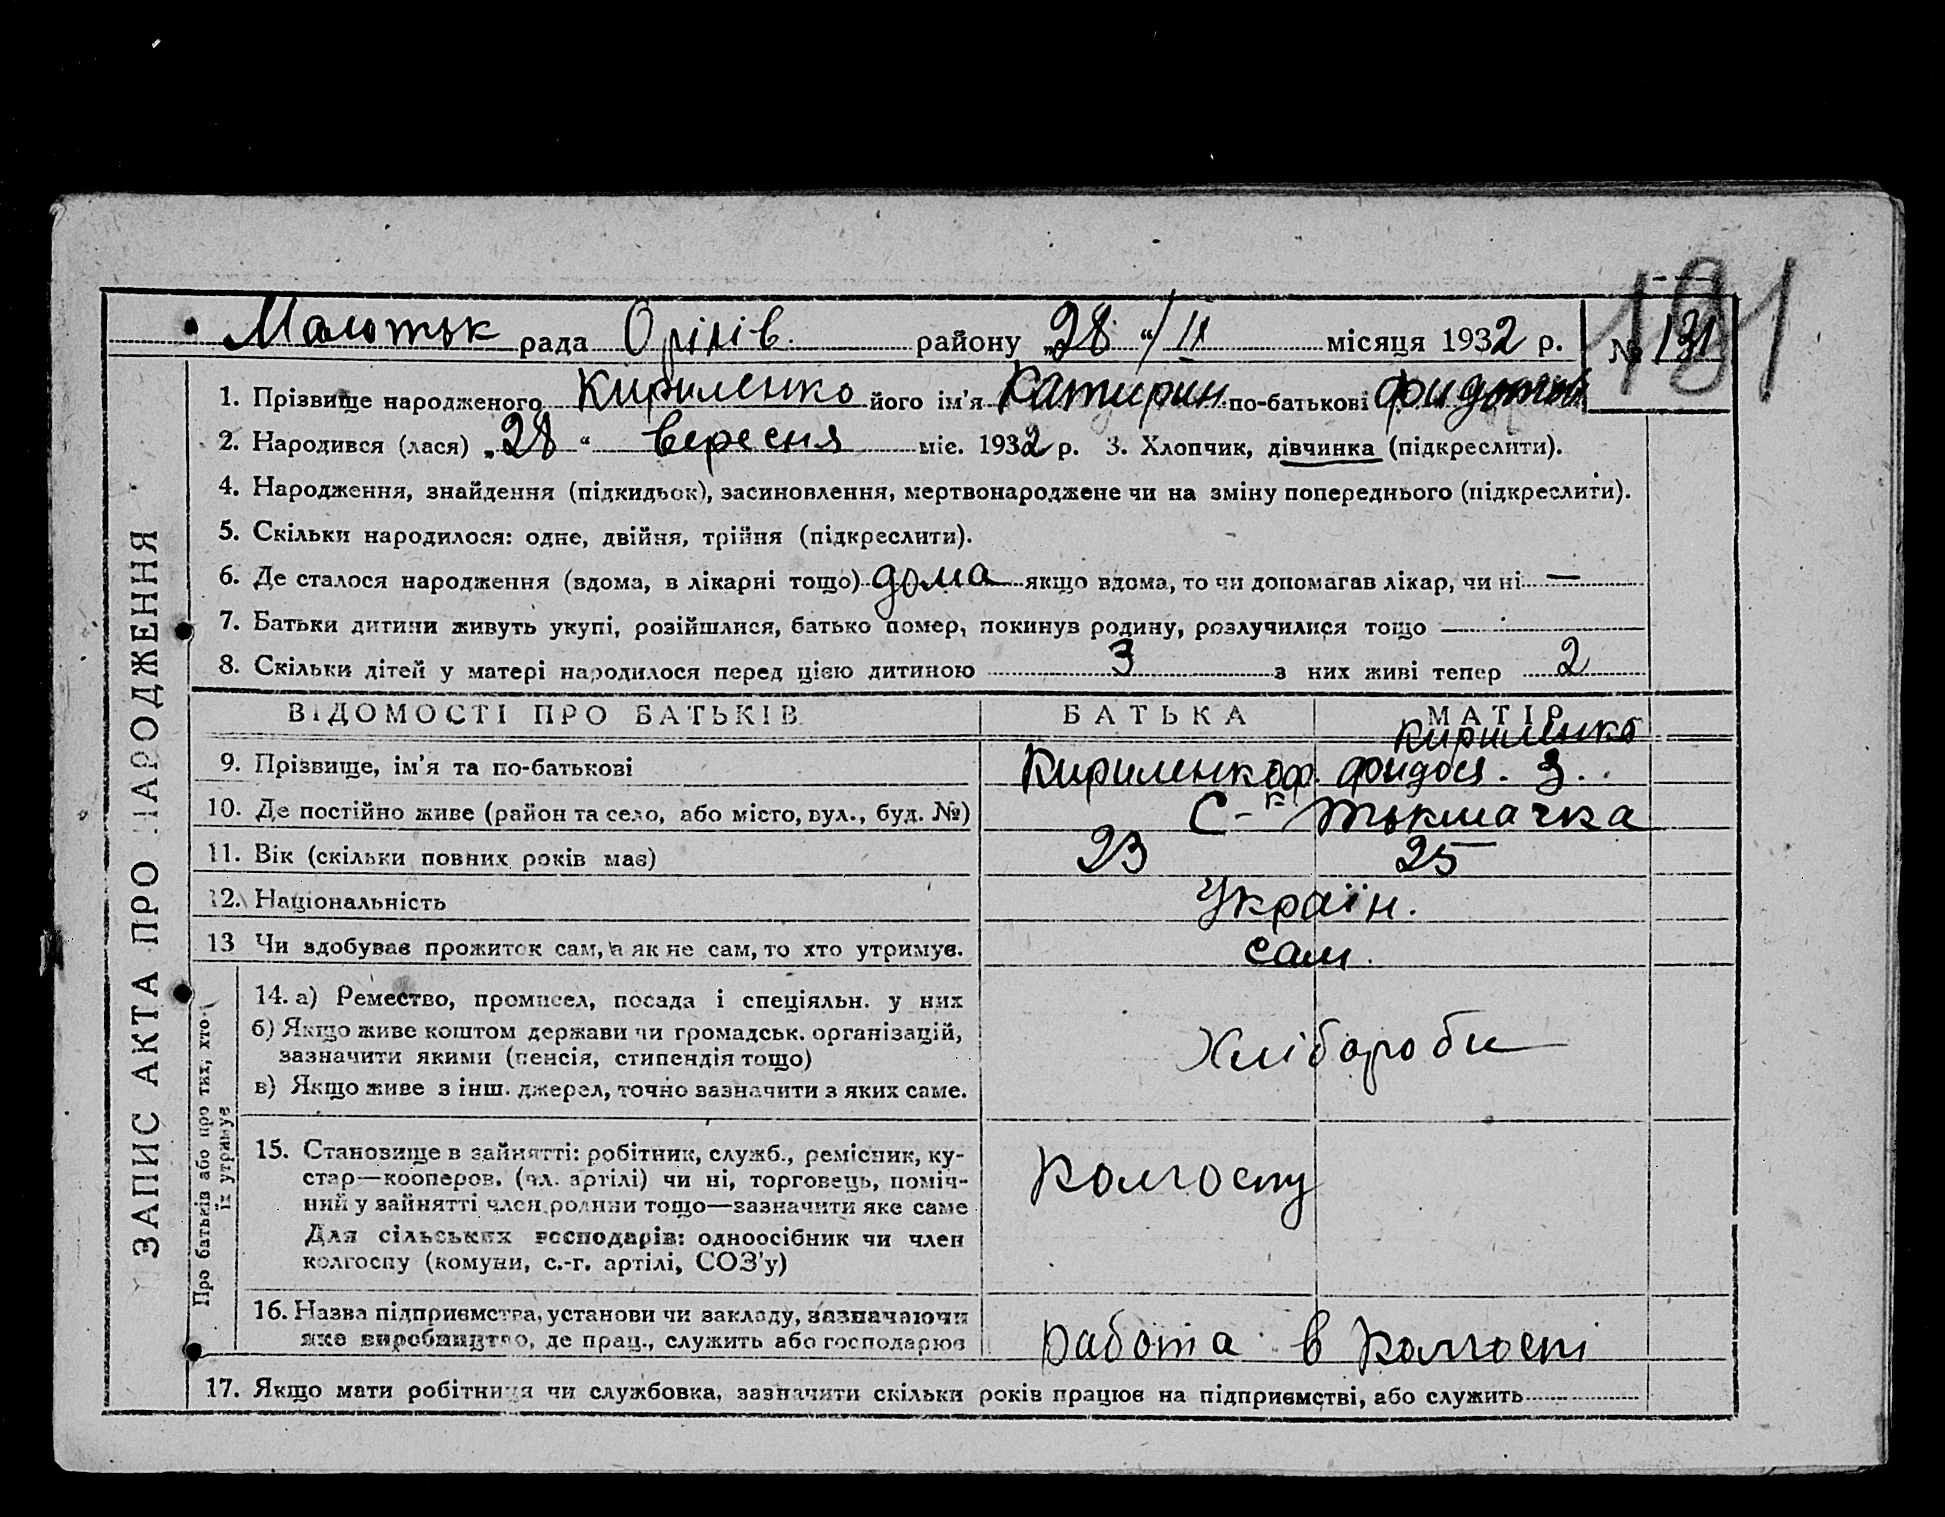 181
Малоток рада Оріхів району „28“/IX місяця 1932 р. № 131
1. Прізвище народженого Кириленко його ім'я Катирин по-батькові
2. Народився (лася) „28“ вересня міс. 1932 р. 3. Хлопчик, дівчинка (підкреслити).
4. Народження, знайдення (підкидьок), засиновлення, мертвонароджене чи на зміну попереднього (підкреслити).
5. Скільки народилося: одне, двійня, трійня (підкреслити).
6. Де сталося народження (вдома, в лікарні тощо) дома якщо вдома, то чи допомагав лікар, чи ні —
7. Батьки дитини живуть укупі, розійшлися, батько помер, покинув родину, розлучилися тощо
8. Скільки дітей у матері народилося перед цією дитиною 3 з них живі тепер 2
ВІДОМОСТІ ПРО БАТЬКІВ БАТЬКА МАТІР
Кириленко
9. Прізвище, ім'я та по-батькові Кириленко ф. фидося. З..
10. Де постійно живе (район та село, або місто, вул., буд. №) С-к Токмачка
11. Вік (скільки повних років має) 23 25
12. Національність Україін.
13 Чи здобуває прожиток сам, а як не сам, то хто утримує. сам.
14. а) Ремество, промисел, посада і спеціяльн. у них
б) Якщо живе коштом держави чи громадськ. організацій,
зазначити якими (пенсія, стипендія тощо)
Хлібороби
в) Якщо живе з інш. джерел, точно зазначити з яких саме.
15. Становище в зайнятті: робітник, служб., ремісник, ку-
стар—кооперов. (чл. артілі) чи ні, торговець, поміч-
ний у зайнятті член родини тощо—зазначити яке саме
Колгоспу
Для сільських господарів: одноосібник чи член
колгоспу (комуни, с.-г. артілі, СОЗ'у)
16. Назва підприємства, установи чи закладу, зазначаючи
яке виробництво, де прац., служить або господарює
работа в колгоспі
17. Якщо мати робітниця чи службовка, зазначити скільки років працює на підприємстві, або служить
ЗАПИС АКТА ПРО НАРОДЖЕННЯ
Про батьків або про тих, хто
їх утримує